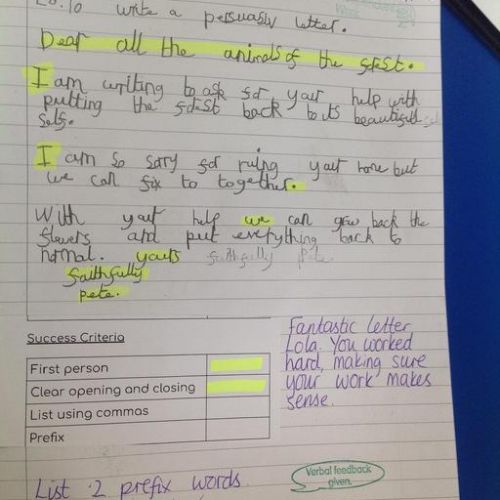 20.10 write a persuasiv letter.
Dear all the animals of the forest.
I am writing to ask for your help with
putting the forest back to its beautiful
self.
I am so sorry for ruing your home but
we can fix to together.
With your help we can grow back the
flowers and put everything back to
normal. yours faithfully pete.
faithfully
pete.
Success Criteria
First person
Clear opening and closing
List using commas
Prefix
Fantastic letter
Lola. You worked
hard, making sure
your work makes
sense.
List 2 prefix words.
Verbal feedback
given.